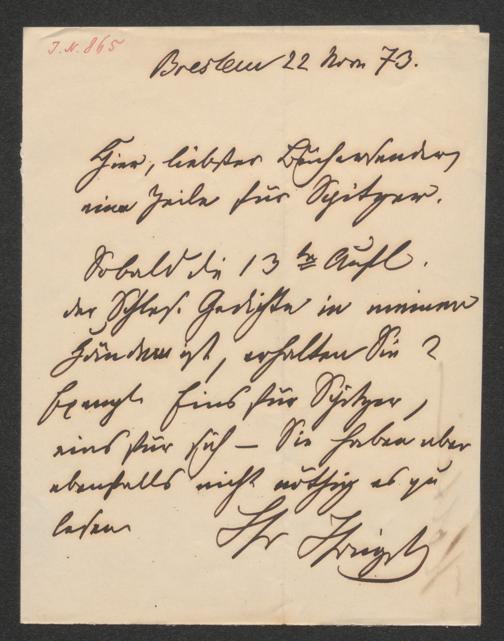 J. N. 865
Breslau 22 Nov 73.
Hier, liebster
eine Zeile für Spitzer.
Sobald die 13te Aufl.
der Schles. Gedichte in meinen
Händen ist, erhalten Sie 2
Exempl. Eins für Spitzer,
eins für sich – Sie haben aber
ebenfalls nicht nöthig es zu
lesen
Ihr